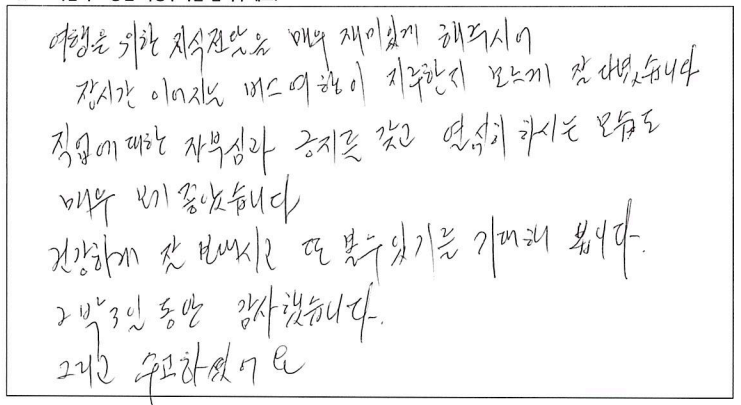 여행을 위한 지식전달을 매우 재미있게 해주시어
장시간 이어지는 버스여행이 지루한지 모르게 잘 다녔습니다
직업에 대한 자부심과 긍지를 갖고 열심히 하시는 모습도
매우 보기 좋았습니다
건강하게 잘 보내시고 또 볼수 있기를 기대해 봅니다.
2박3일 동안 감사했습니다.
그리고 수고하셨어요